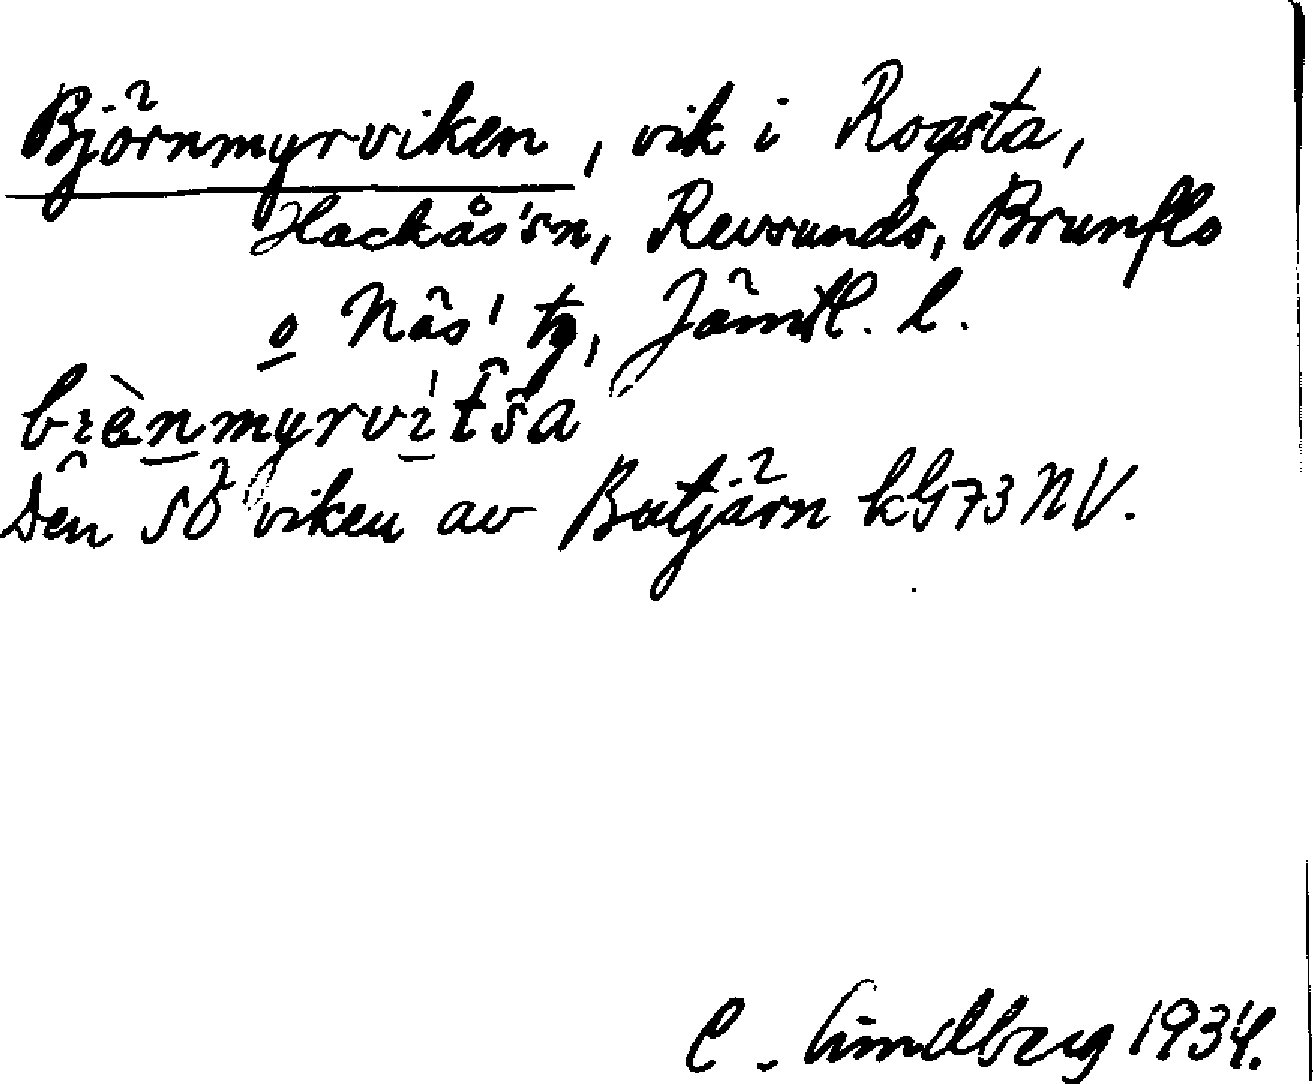 Björnmyrviken, vik i Rogsta,
Hackås' sn, Revsunds, Brunflo
o Näs' tg, Jämtl. l.
bɪènmyrvìt͡ša
Den sö viken av Butjärn kG73NV.
C. Lindberg 1934.